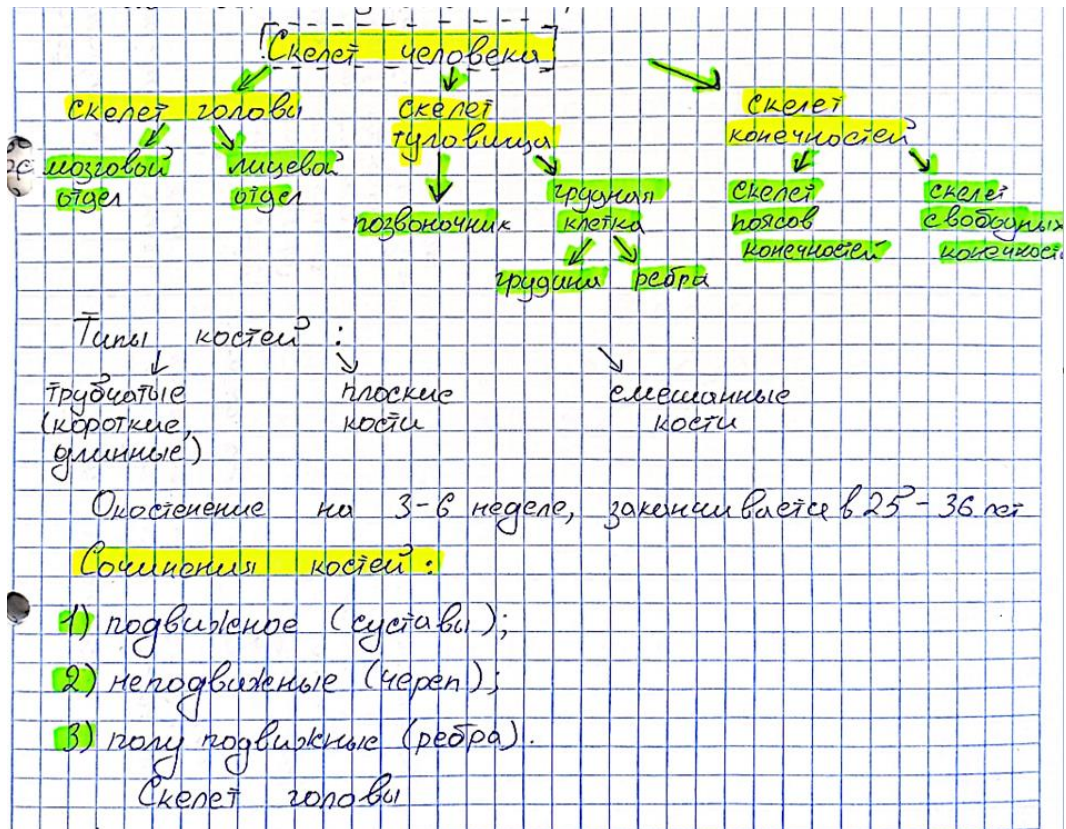 Скелет человека
скелет головы
скелет туловища
скелет конечностей
мозговой отдел
лицевой отдел
позвоночник
грудная клетка
грудина
ребра
скелет поясов конечностей
скелет свободных
Типы костей:
трубчатые (короткие, длинные)
плоские кости
смешанные кости
Окостенение на 3-6 неделе, заканчивается в 25-36 лет
Сочинения костей:
1) подвижное (суставы);
2) неподвижные (череп);
3) полу подвижные (ребра).
Скелет головы